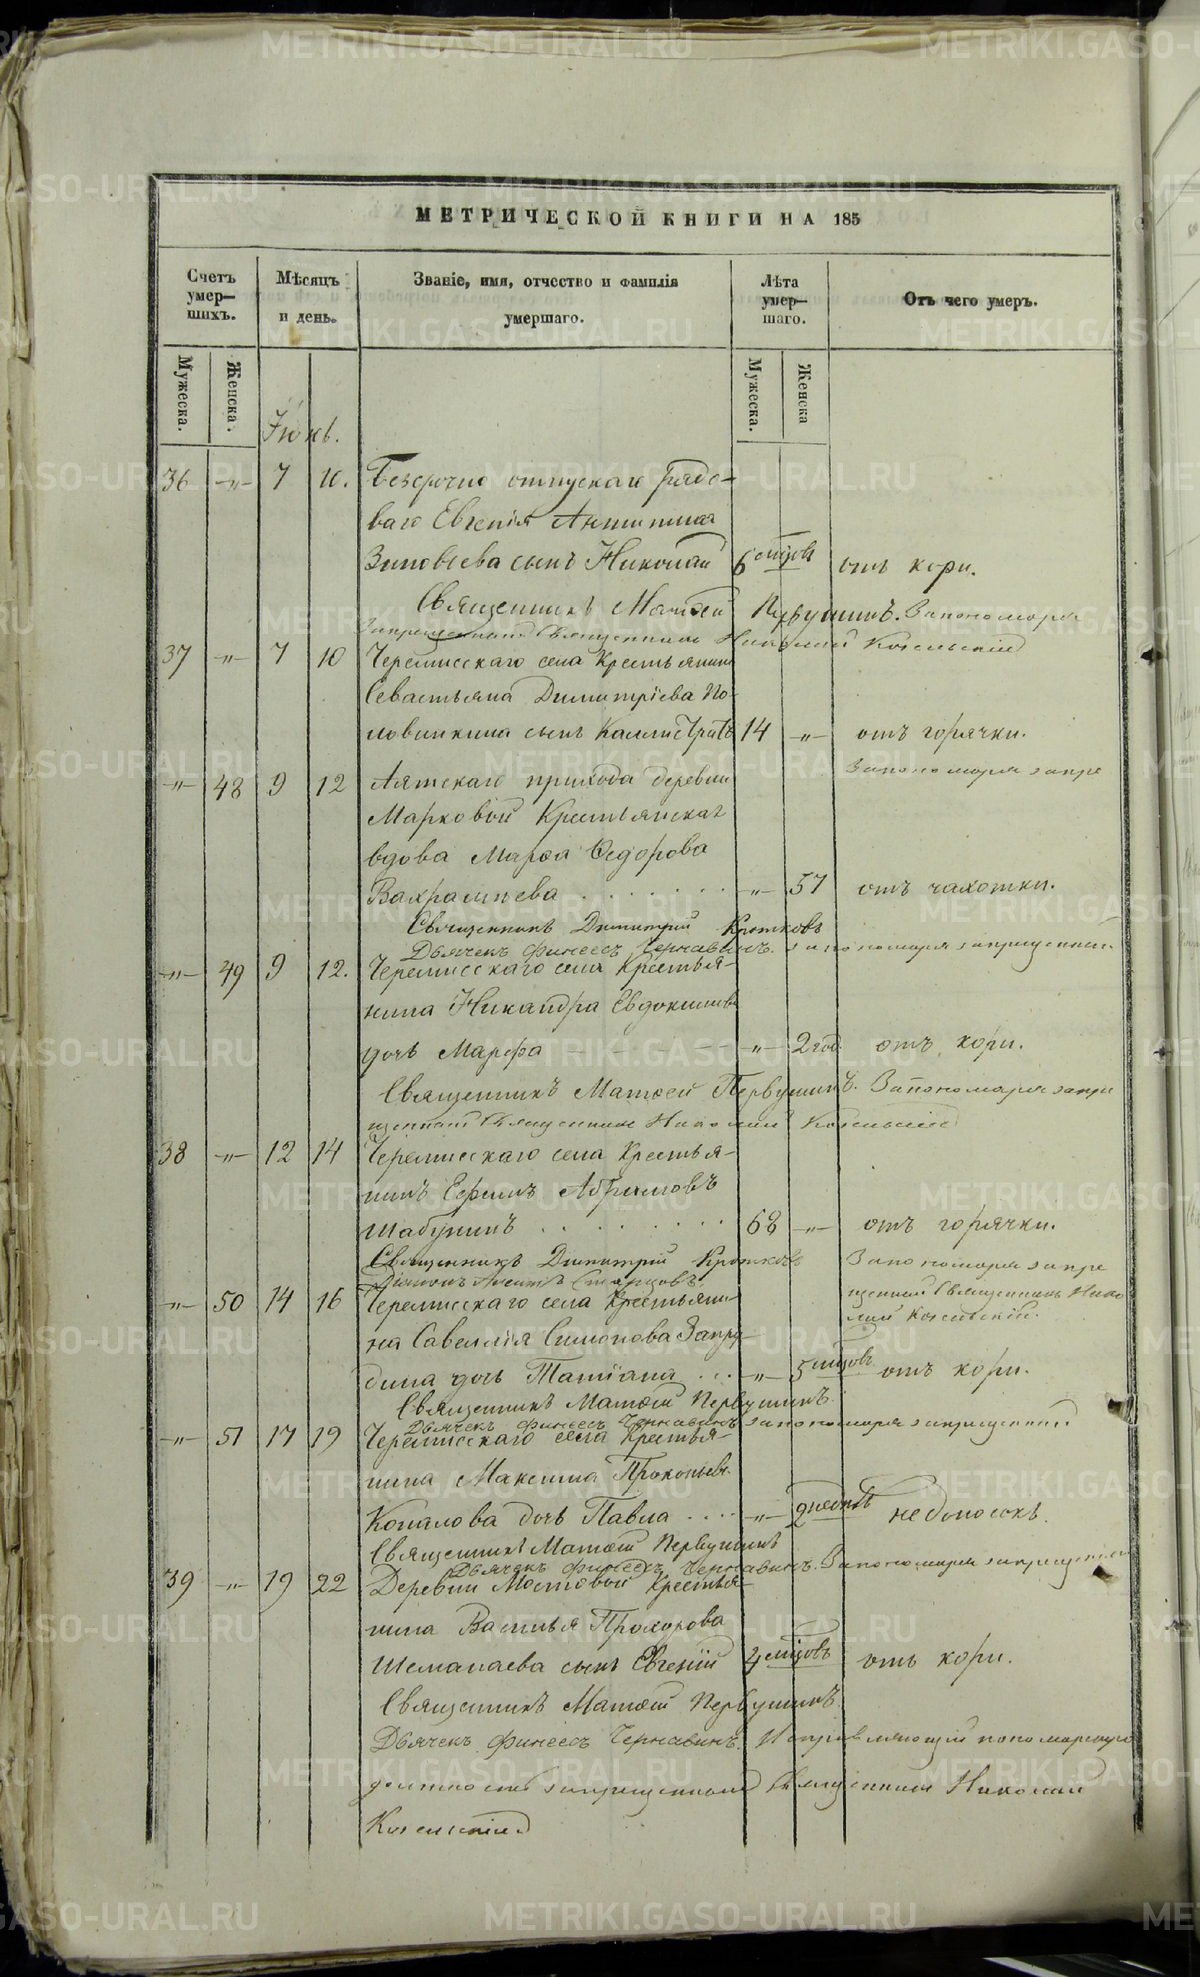 МЕТРИЧЕСКОЙ КНИГИ НА 185
Счетъ умер-шихъ.
Мѣсяцъ и день.
Званіе, имя, отчество и фамилія умершаго.
Лѣта умер-шаго.
Отъ чего умеръ.
Мужеска. Женска. Мужеска. Женска
Іюнь.
36 -"- 7 10. Безсрочно отпускаго рядо-
ваго Евгенія Антипина
Зиновьева сынъ Николай 6 мцовъ отъ кори.
Священникъ Матѳей Первушинъ. За пономаря
запрещенный Священникъ Николай
37 -"- 7 10 Черемисскаго села Крестьянина
Севастьяна Димитріева По-
ловинкина сынъ Каллистратъ 14 -"- отъ горячки.
За пономаря запре
-"- 48 9 12 Аятскаго прихода деревни
Марковой Крестьянская
вдова Марѳа Ѳедорова
Вахрамѣева -"- 57 отъ чахотки.
Священникъ Димитрій Кротковъ
Дьячекъ Финеесъ Чернавинъ. за пономаря запрещенный
-"- 49 9 12. Черемисскаго села Крестья-
нина Никандра Евдокимова
дочь Марфа -"- 2 год. отъ кори.
Священникъ Матѳей Первушинъ. За пономаря запре
щенный Священникъ Николай
38 -"- 12 14 Черемисскаго села Крестья-
нинъ Ефимъ Абрамовъ
Шабунинъ 68 -"- отъ горячки.
Священникъ Димитрій Кротковъ За пономаря запре
-"- 50 14 16 Черемисскаго села Крестьяни-
щенный Священникъ Нико
на Савеллія Симонова Запру-
лай
дина дочь Татіана -"- 5 мцовъ отъ кори.
Священникъ Матѳей Первушинъ
Дьячекъ Финеесъ Чернавинъ за пономаря запрещенный
-"- 51 17 19 Черемисскаго села Крестья-
нина Максима Прокопьева
Копалова дочь Павла -"- 2 недѣль недоносокъ.
Священникъ Матѳей Первушинъ
Дьячекъ Финеесъ Чернавинъ. За пономаря запрещенный
39 -"- 19 22 Деревни Мостовой Крестья-
нина Василья Прохорова
Шеманаева сынъ Евгеній 4 мцовъ отъ кори.
Священникъ Матѳей Первушинъ.
Дьячекъ Финеесъ Чернавинъ. Исправляющій пономарскую
должность запрещенный Священникъ Николай
METRIKI.GASO-URAL.RU